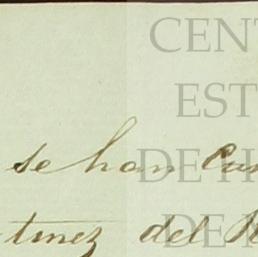 CENT
EST
DE H
DE
se han
tinez del